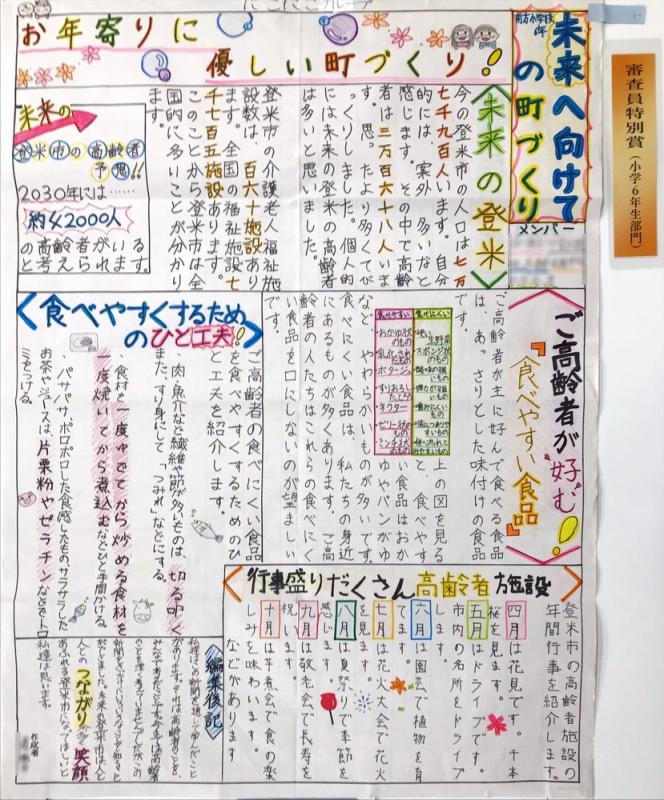 にこにこグループ
お年寄りに
優しい町づくり!
南方小学校
6年
未来へ向けて
の町づくり
メンバー
審査員特別賞(小学6年生部門)
〈未来の登米〉
今の登米市の人口は七万
七千九百人います。自分
的には、案外、多いなと
感じます。その中で高齢
者は三万百六十八人いま
す。思ったより多くてび
っくりしました。個人的
には未来の登米の高齢者
は多いと思いました。
登米市の介護老人福祉施
設数は、百六十施設あり
ます。全国の福祉施設七
千七百五施設あります。
このことから登米市は全
国的に多いことが分かり
ます。
未来の
登米市の高齢者
予想!!
2030年には……
約42000人
の高齢者がいる
と考えられます。
〈ご高齢者が好む!〉
『食べやすい食品』
ご高齢者が主に好んで食べる食品
は、あっさりとした味付けの食品
です。
食べやすい
食べにくい
・おかゆ状のもの
・乳化されたもの
・ポタージュ
・ネクター
・ゼリー状のもの
・ミンチ状のもの
・スポンジ状のもの
上の図を見る
と、食べやす
い食品はおか
ゆやパンがゆ
など、やわらかいものが多いです。
食べにくい食品は、私たちの身近
にあるものが多くあります。ご高
齢者の人たちはこれらの食べにく
い食品を口にしないのが望ましい
です。
〈食べやすくするため
のひと工夫!!〉
ご高齢者の食べにくい食品
を食べやすくするためのひ
と工夫を紹介します。
・肉・魚介など繊維や筋が多いものは、切る叩く
また、すり身にして「つみれ」などにする。
・食材を一度ゆでてから炒める食材を
一度焼いてから煮込むなどひと手間かける。
・パサパサ、ポロポロした食感したものサラサラした
お茶やジュースは、片栗粉やゼラチンなどでトロ
ミをつける。
〈行事盛りだくさん高齢者施設〉
登米市の高齢者施設の
年間行事を紹介します。
四月は花見です。千本
桜を見ます。
五月はドライブです。
市内の名所をドライブ
します。
六月は園芸で植物を育
てます。
七月は花火大会で花火
を見ます。
八月は夏祭りで季節を
感じます。
九月は敬老会で長寿を
祝います。
十月は芋煮会で食の楽
しみを味わいます。
などがあります
編集後記
人との
つながり
が多く
笑顔
あふれる登米市になってほしいと
私達は思います。
作成者